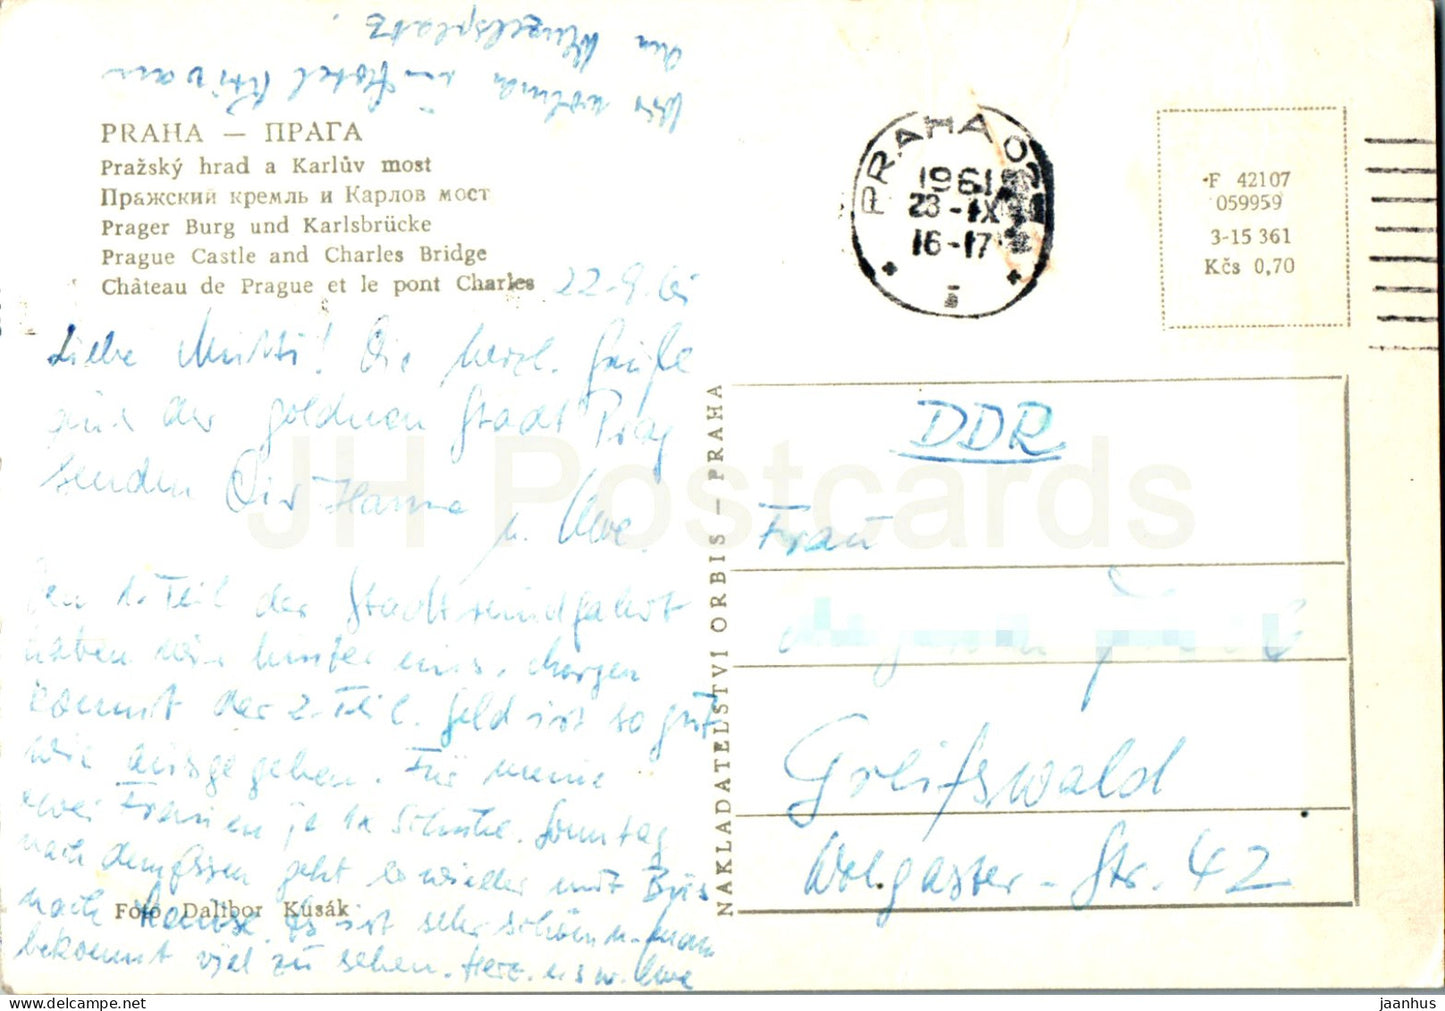 Wir wohnen im Hotel Krivan
am Wenzelsplatz.
PRAHA — ПРАГА
Pražský hrad a Karlův most
Пражский кремль и Карлов мост
Prager Burg und Karlsbrücke
Prague Castle and Charles Bridge
Château de Prague et le pont Charles
22.9.61
Liebe Mutti! Die herzl. Grüße
aus der goldenen Stadt Prag
senden Dir Hanna
u. Uwe.
Den 1. Teil der Stadtrundfahrt
haben wir hinter uns, morgen
kommt der 2. Teil. Geld ist so gut
wie ausgegeben. Für meine
zwei Frauen je 1x Schuhe. Sonntag
nach dem Essen geht es wieder mit Bus
nach Hause. Es ist sehr schön u. man
bekommt viel zu sehen. Herz. Uwe
Foto Dalibor Kusák
NAKLADATELSTVI ORBIS — PRAHA
PRAHA
1961
23-IX
16-17
F 42107
059959
3-15 361
Kčs 0,70
DDR
Frau
Greifswald
Wolgaster-Str. 42
JH Postcards
jaanhus